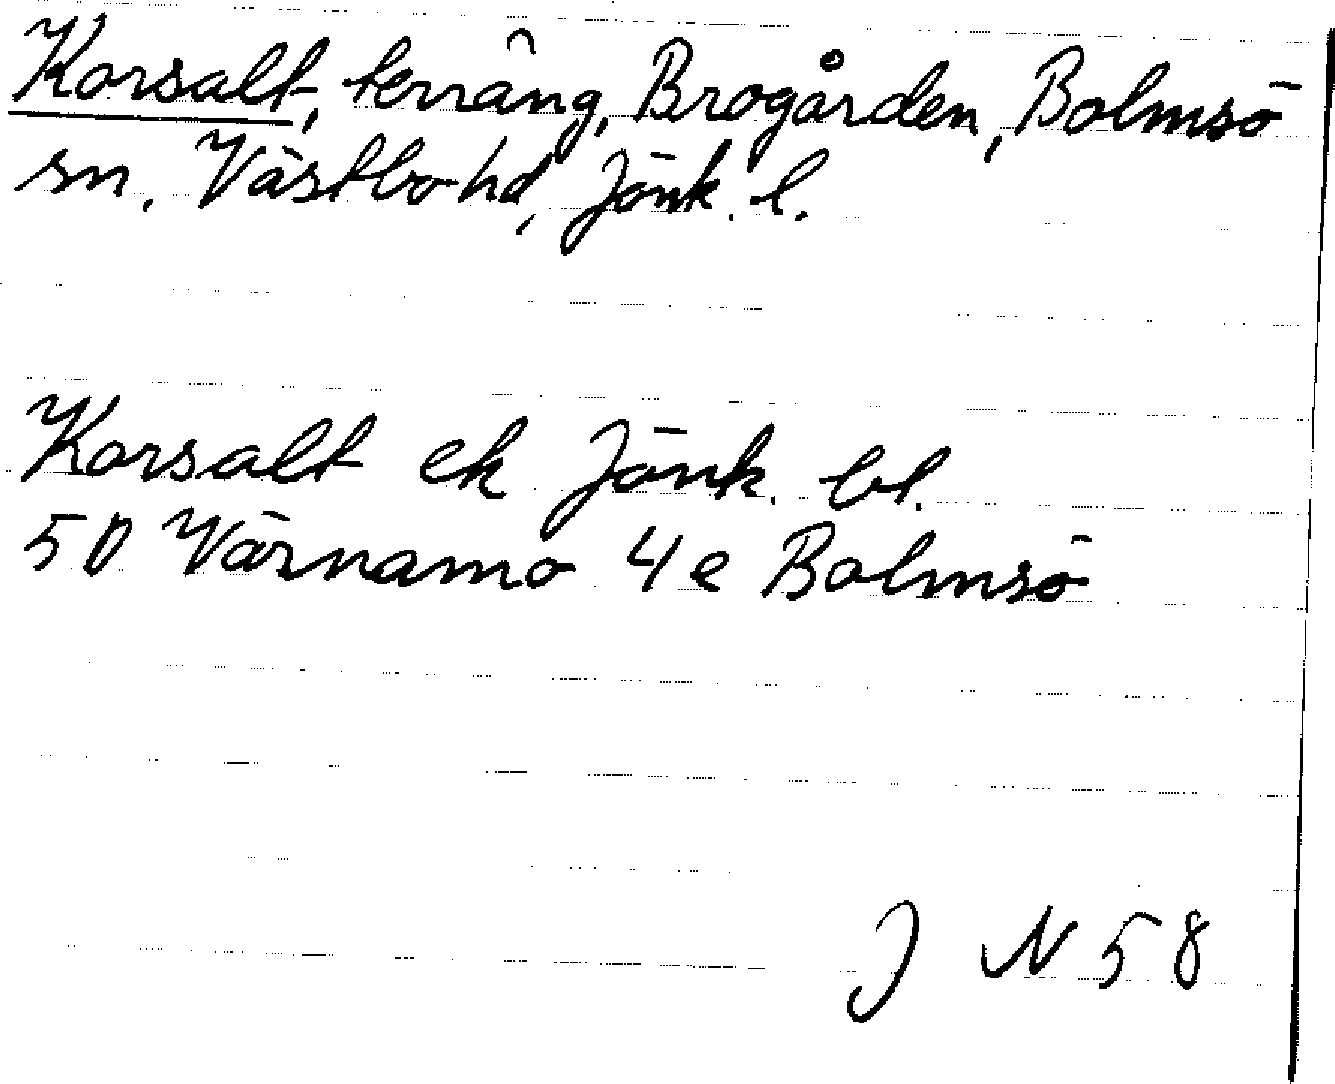 Korsalt, terräng, Brogården, Bolmsö
sn, Västbo hd, Jönk. l.
Korsalt ek Jönk. bl.
5D Värnamo 4e Bolmsö
J N 58